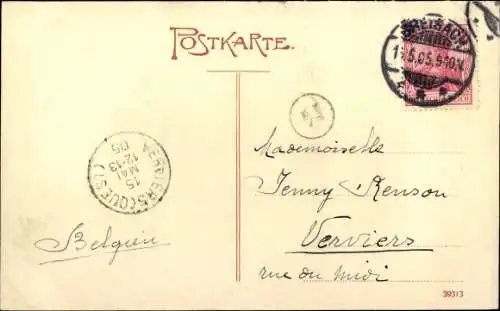 POSTKARTE.
BREISACH
15.5.05.9-10V.
VERVIERS (OUEST)
15
MAI
12-13
05
Mademoiselle
Jenny Renson
Verviers
rue du Midi
Belgien
39313